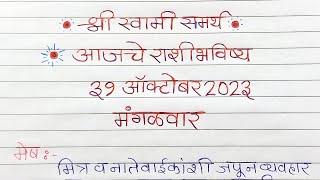 श्री स्वामी समर्थ
आजचे राशीभविष्य
३१ ऑक्टोबर २०२३
मंगळवार
मेष:-
मित्र व नातेवाईकांशी जपून व्यवहार